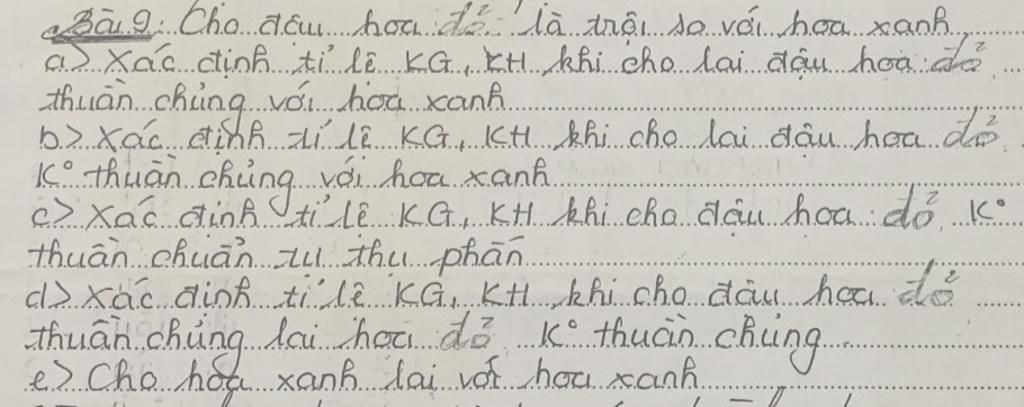 Bài 9: Cho đậu hoa đỏ là trội so với hoa xanh
a> Xác định tỉ lệ KG, KH khi cho lai đậu hoa đỏ
thuần chủng với hoa xanh
b> Xác định tỉ lệ KG, KH khi cho lai đậu hoa đỏ
K° thuần chủng với hoa xanh
c> Xác định tỉ lệ KG, KH khi cho đậu hoa đỏ K°
thuần chuẩn tự thụ phấn
d> Xác định tỉ lệ KG, KH khi cho đậu hoa đỏ
thuần chủng lai hoa đỏ K° thuần chủng
e> Cho hoa xanh lai với hoa xanh